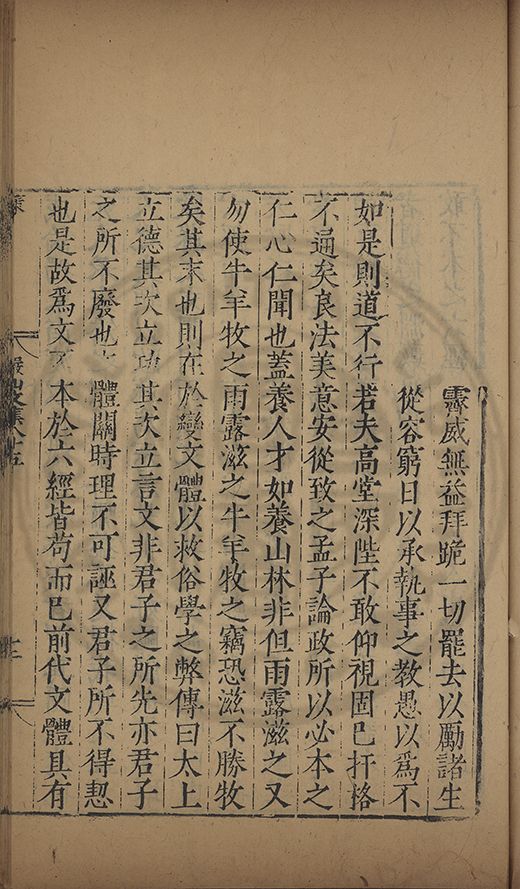 霽威無益拜跪一切罷去以勵諸生
從容窮日以承執事之教愚以爲不
如是則道不行若夫高堂深陛不敢仰視固已扞格
不通矣良法美意安從致之孟子論政所以必本之
仁心仁聞也蓋養人才如養山林非但雨露滋之又
勿使牛羊牧之雨露滋之牛羊牧之竊恐滋不勝牧
矣其末也則在於變文體以救俗學之弊傳曰太上
立德其次立功其次立言文非君子之所先亦君子
之所不廢也 體關時理不可誣又君子所不得恝
也是故爲文不本於六經皆苟而已前代文體具有
文集